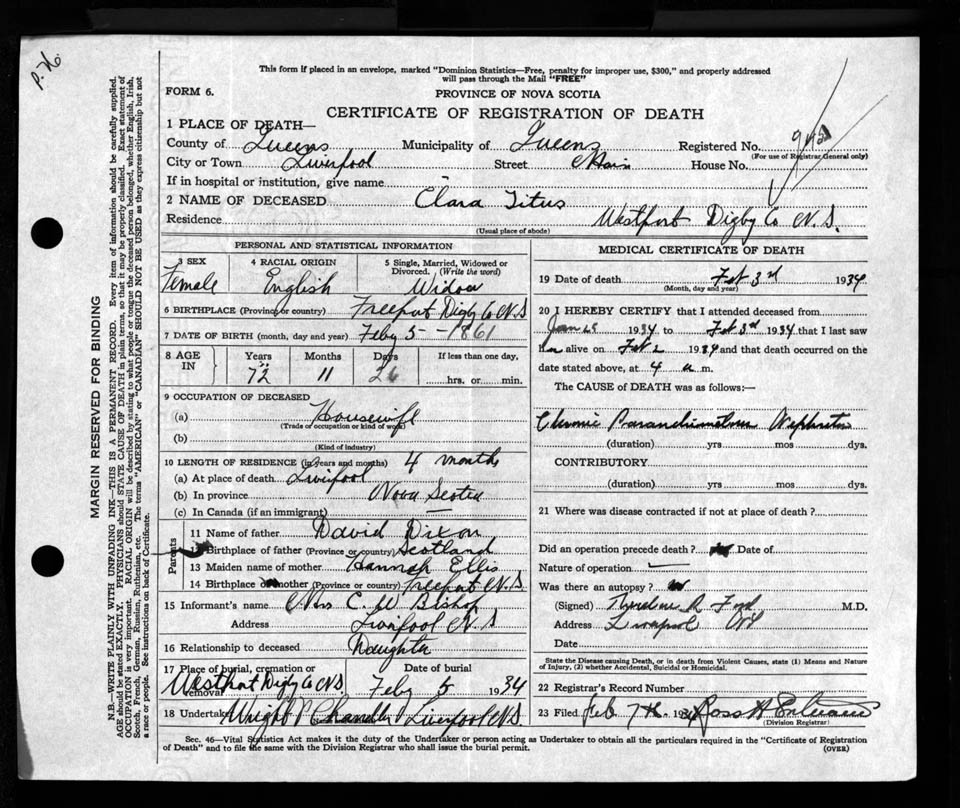 P. 76
This form if placed in an envelope, marked "Dominion Statistics—Free, penalty for improper use, $300," and properly addressed
will pass through the Mail "FREE"
FORM 6.
PROVINCE OF NOVA SCOTIA
CERTIFICATE OF REGISTRATION OF DEATH
1 PLACE OF DEATH—
County of Queens Municipality of Queens Registered No.
(For use of Registrar General only)
City or Town Liverpool Street Main House No.
If in hospital or institution, give name
2 NAME OF DECEASED Clara Titus
Residence Westport Digby Co N.S.
(Usual place of abode)
PERSONAL AND STATISTICAL INFORMATION
3 SEX 4 RACIAL ORIGIN 5 Single, Married, Widowed or
Divorced. (Write the word)
Female English Widow
6 BIRTHPLACE (Province or country) Freeport Digby Co N.S
7 DATE OF BIRTH (month, day and year) Feby 5 - 1861
8 AGE IN Years Months Days If less than one day,
72 11 26 hrs. or min.
9 OCCUPATION OF DECEASED
(a) Housewife
(Trade or occupation or kind of work)
(b)
(Kind of industry)
10 LENGTH OF RESIDENCE (in years and months) 4 months
(a) At place of death Liverpool
(b) In province Nova Scotia
(c) In Canada (if an immigrant) —
Parents
11 Name of father David Dixon
12 Birthplace of father (Province or country) Scotland
13 Maiden name of mother Hannah Ellis
14 Birthplace of mother (Province or country) Freeport N.S
15 Informant's name Mrs C. W Bishop
Address Liverpool N.S
16 Relationship to deceased Daughter
17 Place of burial, cremation or removal Date of burial
Westport Digby Co N.S. Feby 5 1934
18 Undertaker Wright Chandler Liverpool N.S
MEDICAL CERTIFICATE OF DEATH
19 Date of death Feb 3rd 1934
(Month, day and year)
20 I HEREBY CERTIFY that I attended deceased from
Jan 1934 to Feb 3rd 1934 that I last saw
her alive on Feb 2 1934 and that death occurred on the
date stated above, at 4 a m.
The CAUSE OF DEATH was as follows:—
Chronic Parenchimatous Nephritis
(duration) yrs mos dys.
CONTRIBUTORY
(duration) yrs. mos dys.
21 Where was disease contracted if not at place of death?
Did an operation precede death? Date of
Nature of operation
Was there an autopsy? no
(Signed) Ford M.D.
Address Liverpool NS
Date
State the Disease causing Death, or in death from Violent Causes, state (1) Means and Nature
of Injury, (2) whether Accidental, Suicidal or Homicidal.
22 Registrar's Record Number
23 Filed Feb 7th 1934 Ross H
(Division Registrar)
Sec. 46—Vital Statistics Act makes it the duty of the Undertaker or person acting as Undertaker to obtain all the particulars required in the "Certificate of Registration
of Death" and to file the same with the Division Registrar who shall issue the burial permit.
(OVER)
MARGIN RESERVED FOR BINDING
N.B.—WRITE PLAINLY WITH UNFADING INK—THIS IS A PERMANENT RECORD. Every item of information should be carefully supplied.
AGE should be stated EXACTLY. PHYSICIANS should STATE CAUSE OF DEATH in plain terms, so that it may be properly classified. Exact statement of
OCCUPATION is very important. RACIAL ORIGIN will be described by stating to what people or tongue the deceased person belonged, whether English, Irish,
Scotch, French, German, Russian, Ruthenian, etc. The terms "AMERICAN" or "CANADIAN" SHOULD NOT BE USED as they express citizenship but not
a race or people. See instructions on back of Certificate.